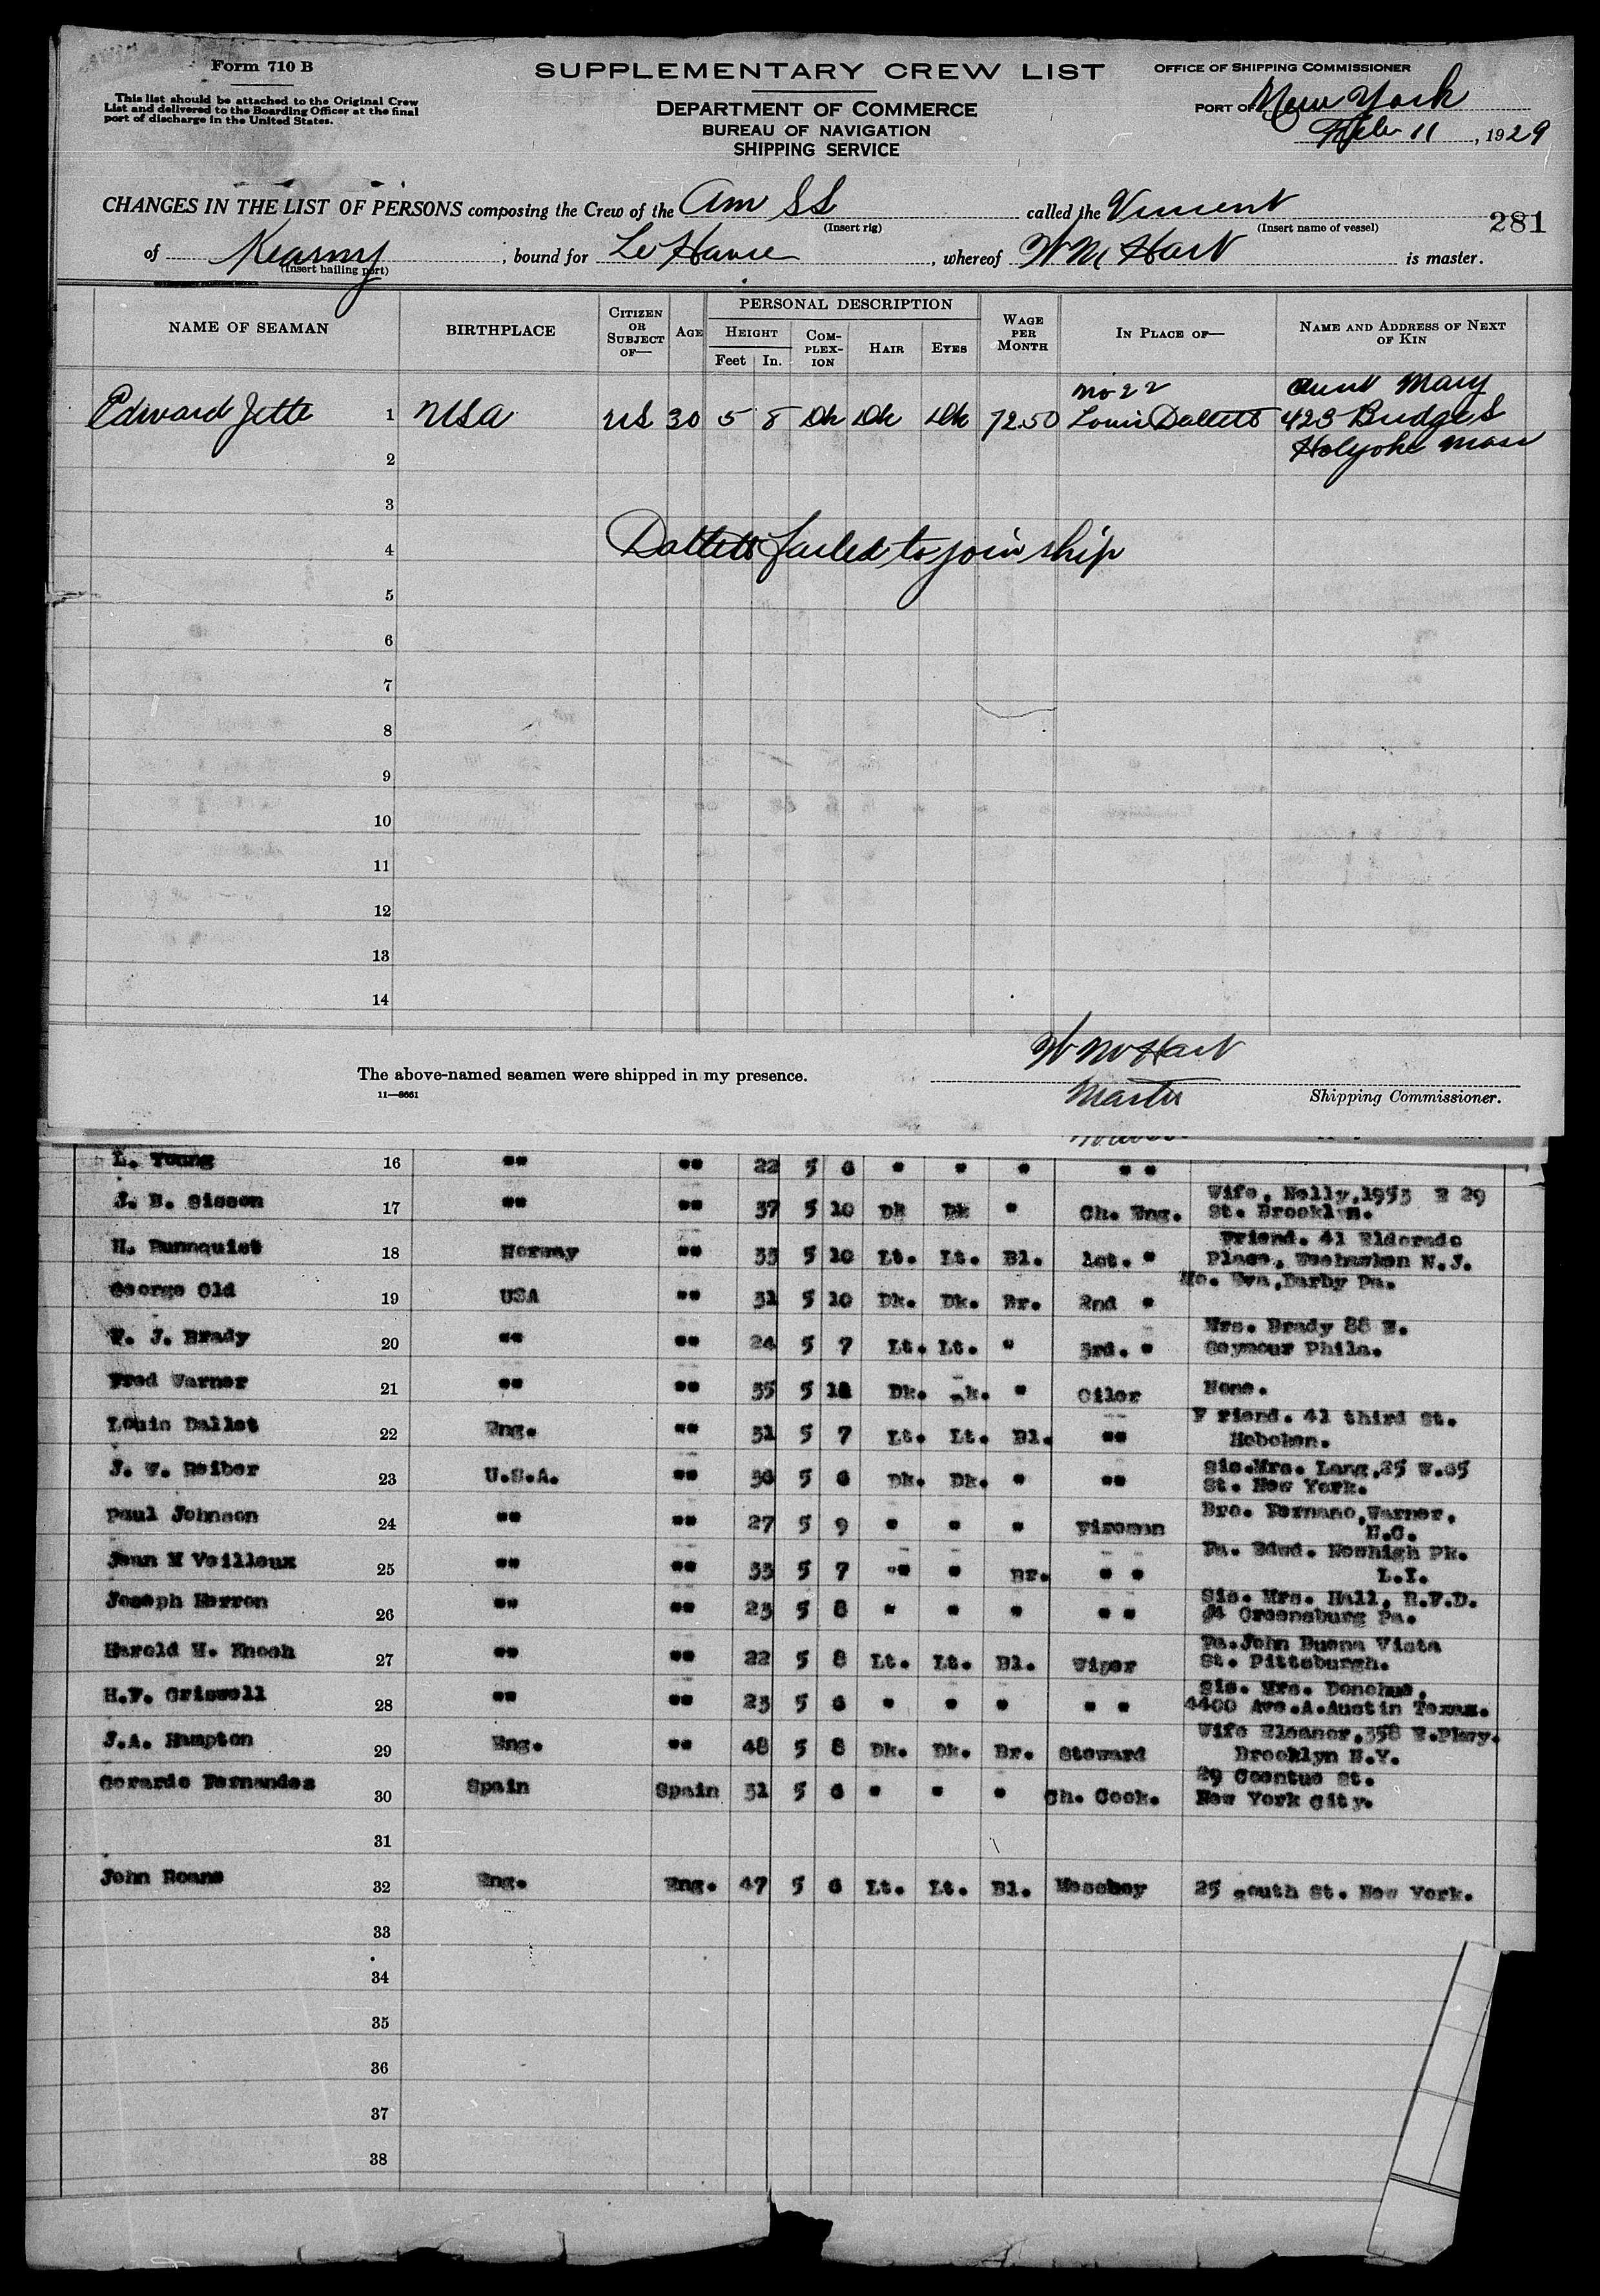 Form 710 B
This list should be attached to the Original Crew
List and delivered to the Boarding Officer at the final
port of discharge in the United States.
SUPPLEMENTARY CREW LIST
DEPARTMENT OF COMMERCE
BUREAU OF NAVIGATION
SHIPPING SERVICE
OFFICE OF SHIPPING COMMISSIONER
PORT OF New York
Feb 11, 1929
CHANGES IN THE LIST OF PERSONS composing the Crew of the Am SS called the Vincent
(Insert rig) (Insert name of vessel)
281
of Kearny, bound for Le Havre, whereof W M Hart is master.
(Insert hailing port)
NAME OF SEAMAN BIRTHPLACE CITIZEN OR SUBJECT OF— AGE PERSONAL DESCRIPTION HEIGHT Feet In. COMPLEXION HAIR EYES WAGE PER MONTH IN PLACE OF— NAME AND ADDRESS OF NEXT OF KIN
no 22 Aunt Mary
Edward Jette 1 USA US 30 5 8 Dk Dk Dk 72.50 Louis Dalletts 423 Bridge S
2 Holyoke Mass
3
4 Dalletts failed to join ship
5
6
7
8
9
10
11
12
13
14
W M Hart
The above-named seamen were shipped in my presence.
11—8661
Master Shipping Commissioner.
L. Young 16 "" "" 22 5 6 " " " " "
Wife, Nelly, 1953 E 29
J. B. Sisson 17 "" "" 37 5 10 Dk Dk " Ch. Eng. St. Brooklyn.
Friend. 41 Eldorado
H. Bunnquist 18 Norway "" 33 5 10 Lt. Lt. Bl. 1st. " Place, Weehawken N.J.
George Old 19 USA "" 31 5 10 Dk. Dk. Br. 2nd " Mo. Eva, Darby Pa.
Mrs. Brady 88 E.
F. J. Brady 20 "" "" 24 5 7 Lt. Lt. " 3rd. " Seymour Phila.
Fred Warner 21 "" "" 35 5 Dk. Dk. " Oiler None.
F riend. 41 third St.
Louis Dallet 22 Eng. "" 31 5 7 Lt. Lt. Bl. "" Hoboken.
Sis.Mrs. Lang,25 W.65
J. W. Reiber 23 U.S.A. "" 30 5 6 Dk. Dk. " "" St. New York.
Bro. Fernano, Warner.
Paul Johnson 24 "" "" 27 5 9 " " " Fireman N.C.
Fa. Edwd. Newhigh Pk.
Jean M Veilleux 25 "" "" 33 5 7 "" " Br. " " L.I.
Sis. Mrs. Hall, R.F.D.
Joseph Herron 26 "" "" 23 5 8 " " " " " #4 Greensburg Pa.
Fa.John Buena Vista
Harold H. Enoch 27 "" "" 22 5 8 Lt. Lt. Bl. Wiper St. Pittsburgh.
Sis. Mrs. Donohue,
H.F. Griswell 28 "" "" 23 5 6 " " " " " 4400 Ave.A.Austin Texas.
Wife Eleanor,358 E.Pkwy.
J.A. Hampton 29 Eng. "" 48 5 8 Dk. Dk. Br. Steward Brooklyn N.Y.
29 Coentus St.
Gerardo Fernandez 30 Spain Spain 31 5 6 " " " Ch. Cook. New York City.
31
John Roans 32 Eng. Eng. 47 5 6 Lt. Lt. Bl. Messboy 25 south St. New York.
33
34
35
36
37
38